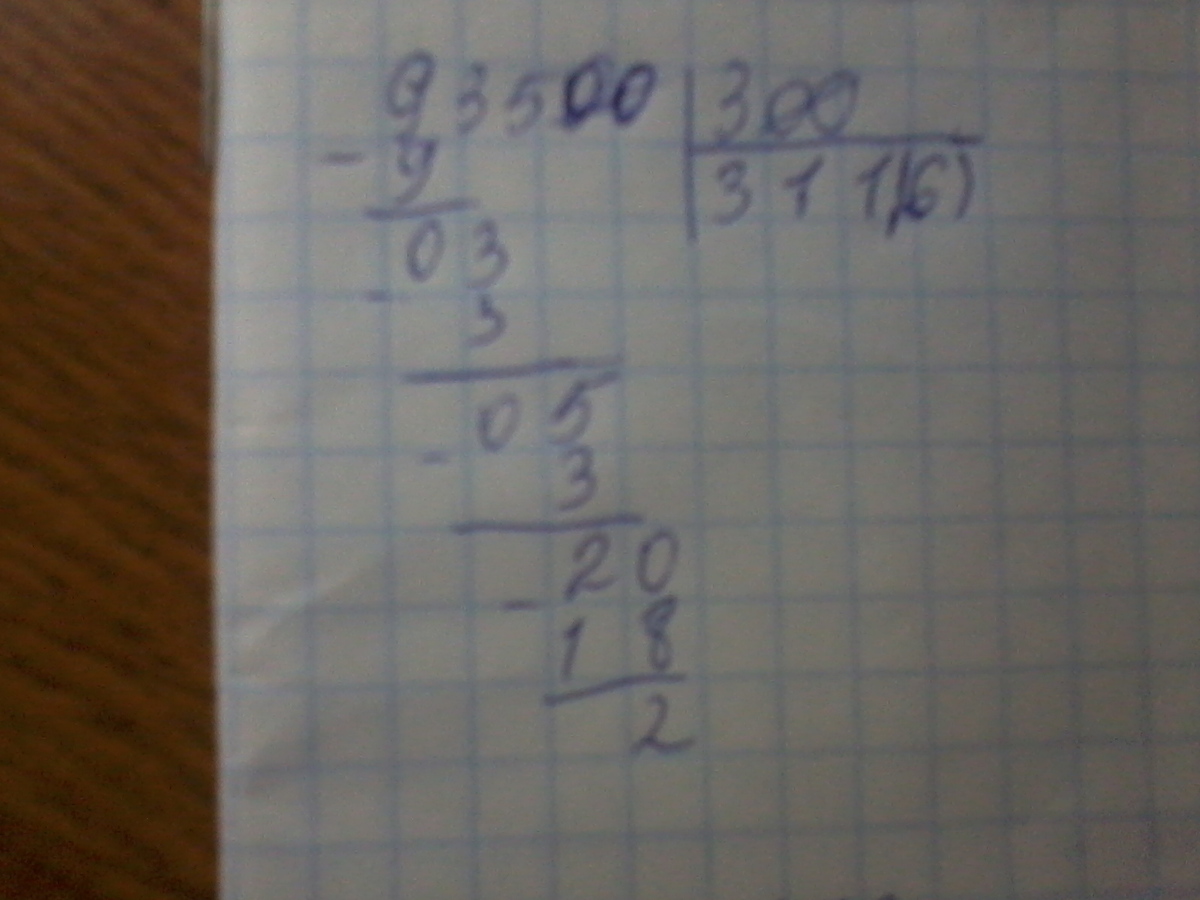 93500 | 300
- 9 | 311,(6)
03
- 3
05
- 3
20
- 18
2